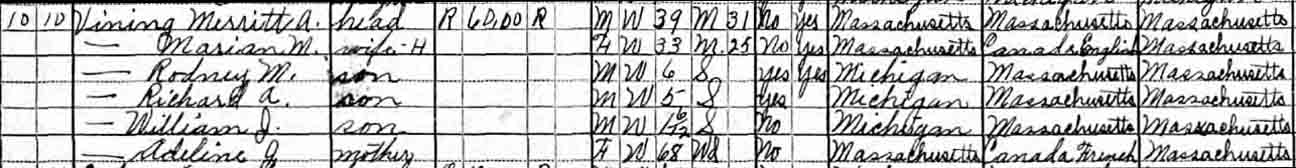 10 10 Vining Merritt A. head R 60.00 R M W 39 M 31 No Yes Massachusetts Massachusetts Massachusetts
— Marian M. wife-H F W 33 M 25 No Yes Massachusetts Canada English Massachusetts
— Rodney M. son M W 6 S Yes Yes Michigan Massachusetts Massachusetts
— Richard A. son M W 5 S Yes Michigan Massachusetts Massachusetts
— William J. son M W 1 6/12 S No Michigan Massachusetts Massachusetts
— Adeline J. mother F W 68 Wd No Massachusetts Canada French Massachusetts